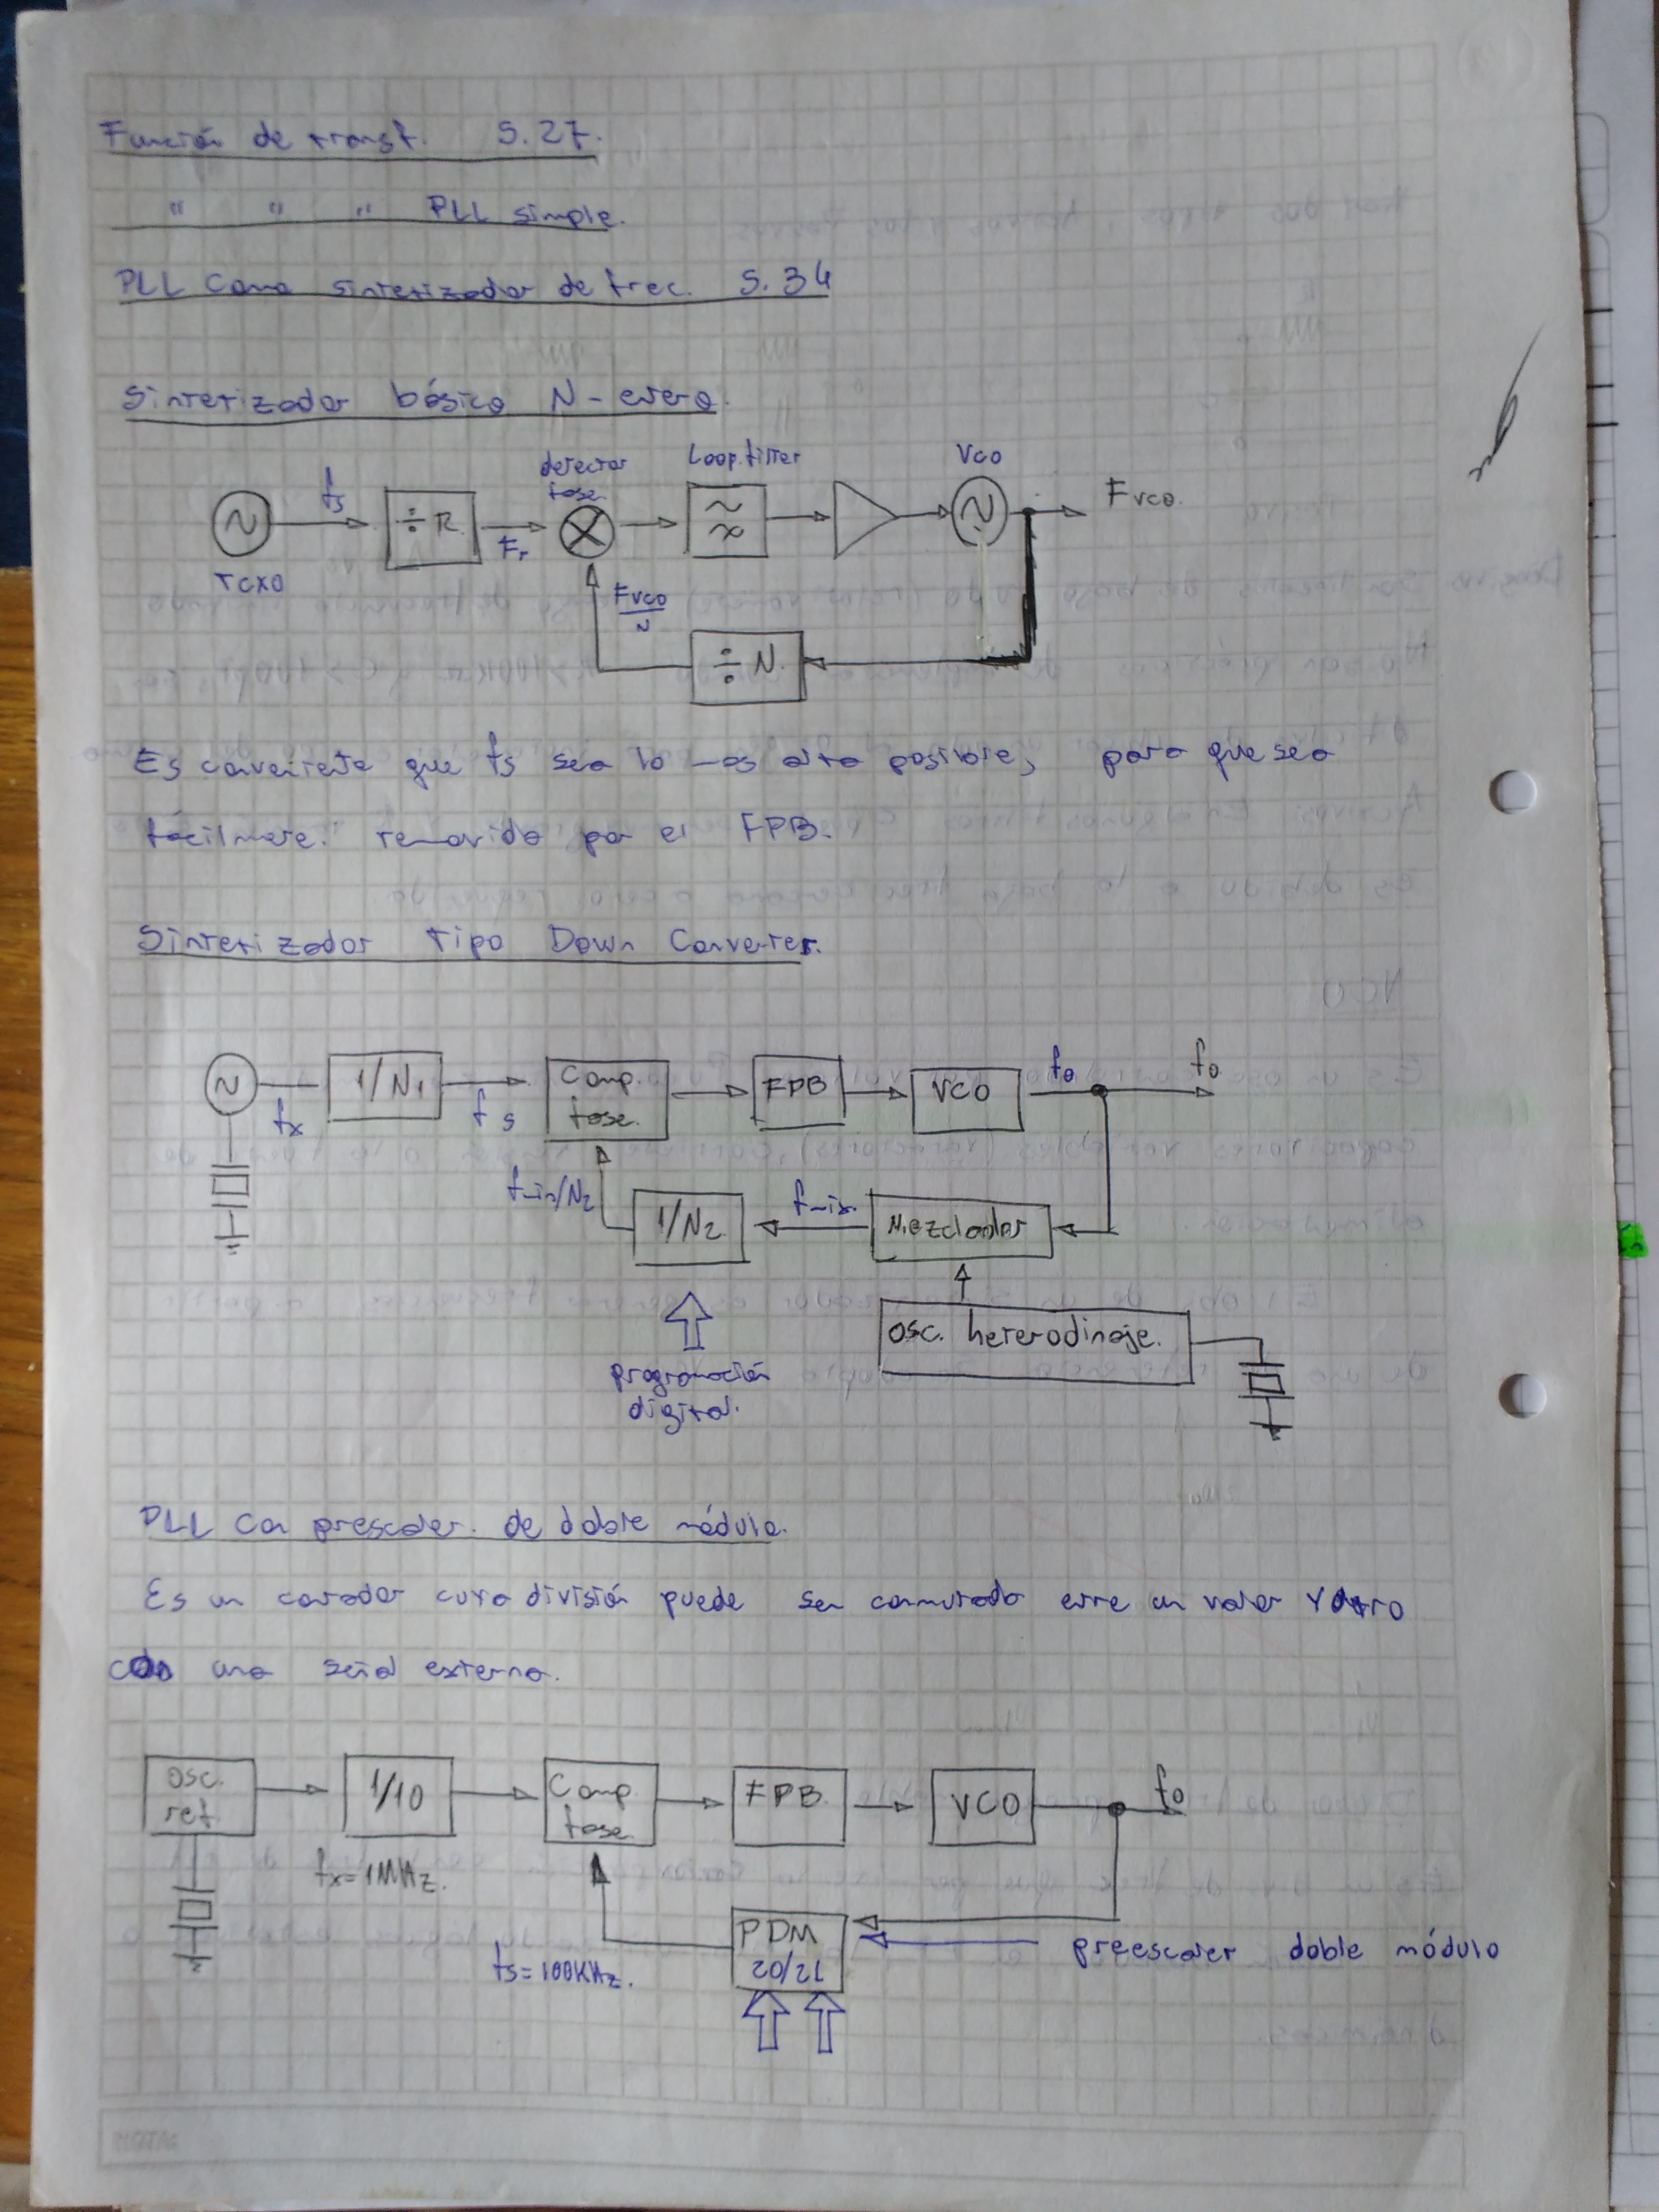 Función de transf. 5.27.
" " " PLL simple.
PLL como sintetizador de frec. 5.34
Sintetizador básico N-entero.
detector Loop filter VCO
fase
fs
÷R
Fr
Fvco.
TCXO
Fvco
N
÷N
Es conveniente que fs sea lo mas alto posible, para que sea
fácilmente. removido por el FPB.
Sintetizador tipo Down Converter.
fx
1/N1
fs
Comp.
fase.
FPB
VCO
fo
fo
fmin/N2
1/N2
fmix.
Mezclador
osc. heterodinaje.
programación
digital.
PLL con prescaler. de doble módulo.
Es un contador cuya división puede ser conmutado entre un valor y otro
con una señal externa.
osc.
ref.
1/10
Comp
fase
FPB.
VCO
fo
fx=1MHz.
fs=100KHz.
PDM
20/21
preescaler doble módulo
NOTA: